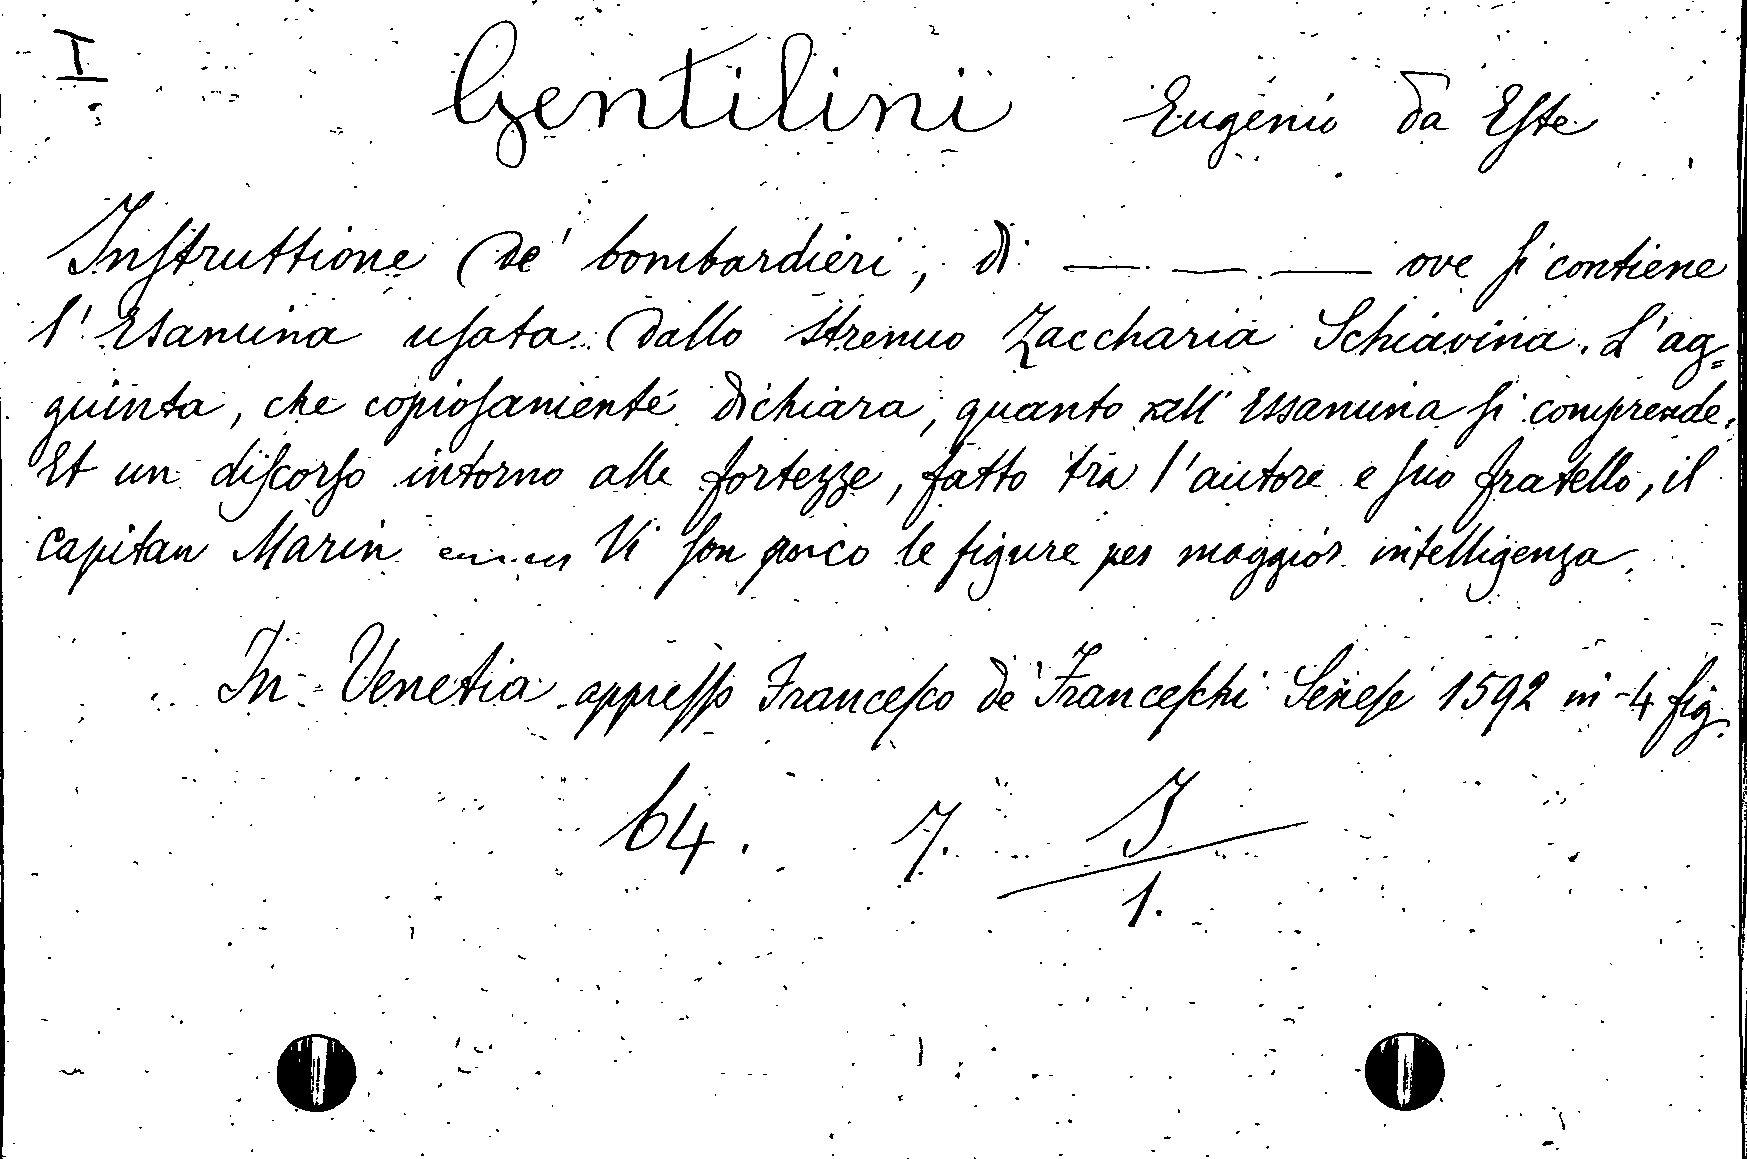 I
Gentilini Eugenio da Este
Instruttione de' bombardieri, di — — — ove si contiene
l'Esamina usata dallo strenuo Zaccharia Schiavina. L'ag=
guinta, che copiosamente dichiara, quanto nell' Essamina si comprende.
Et un discorso intorno alle fortezze, fatto tra l'autore e suo fratello, il
capitan Marin Vi son le figure per maggior intelligenza.
In Venetia appresso Francesco de' Franceschi Senese 1592 in-4 fig.
64. 7. I
1.